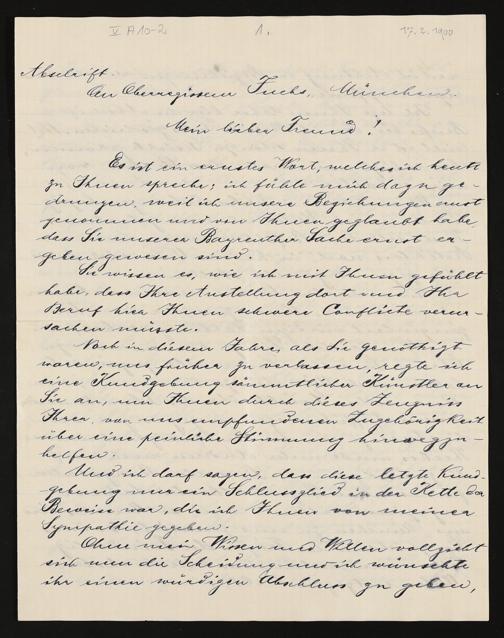 V A 10-2
1.
17.2.1900
Abschrift.
An Oberregisseur Fuchs, München.
Mein lieber Freund!
Es ist ein ernstes Wort, welches ich heute
zu Ihnen spreche; ich fühlte mich dazu ge-
drungen, weil ich unsere Beziehungen ernst
genommen und von Ihnen geglaubt habe,
dass Sie unserer Bayreuther Sache ernst er-
geben gewesen sind.
Sie wissen es, wie ich mit Ihnen gefühlt
habe, dass Ihre Anstellung dort und Ihr
Beruf hier Ihnen schwere Conflicte verur-
sachen müsste.
Noch in diesem Jahre, als Sie genöthigt
waren, uns früher zu verlassen, regte ich
eine Kundgebung sämmtlicher Künstler an
Sie an, um Ihnen durch dieses Zeugniss
Ihrer, von uns empfundenen Zugehörigkeit
über eine peinliche Stimmung hinwegzu-
helfen.
Und ich darf sagen, dass diese letzte Kund-
gebung nur ein Schlussglied in der Kette der
Beweise war, die ich Ihnen von meiner
Sympathie gegeben.
Ohne mein Wissen und Willen vollzieht
sich nun die Scheidung und ich wünschte
ihr einen würdigen Abschluss zu geben,